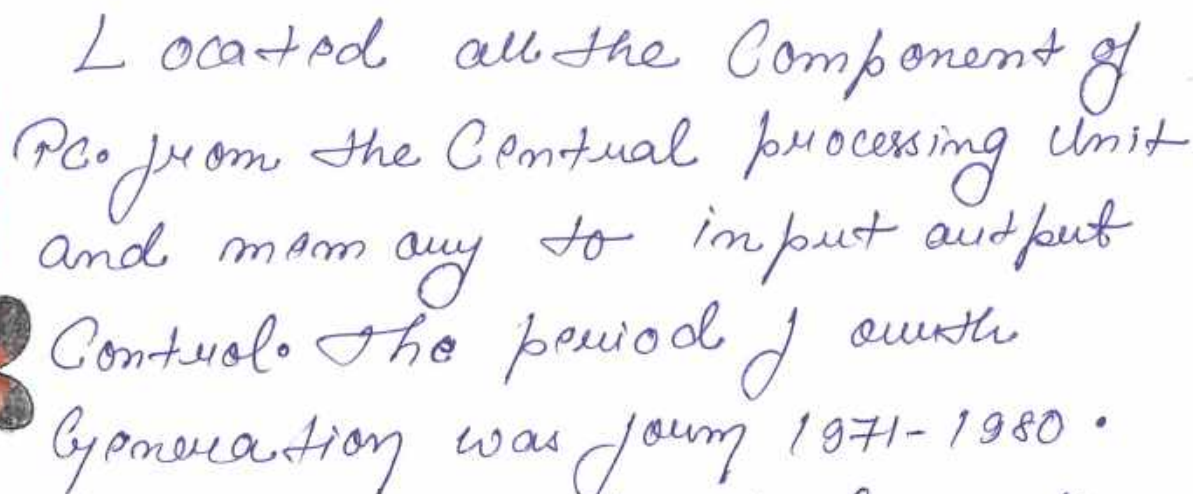 Located all the Component of
PC. from the Central processing Unit
and memory to input output
Control. The period fourth
Generation was from 1971-1980.